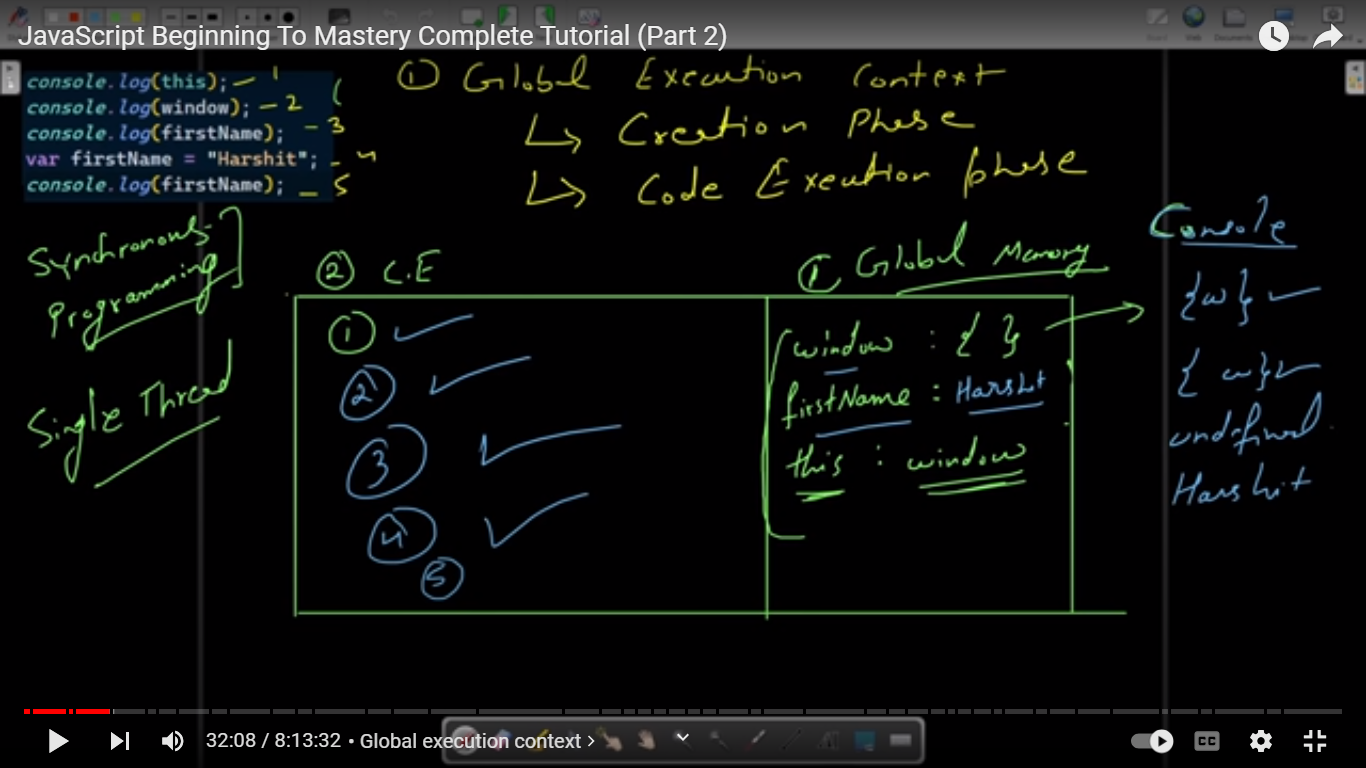 JavaScript Beginning To Mastery Complete Tutorial (Part 2)
console.log(this); – 1
console.log(window); – 2
console.log(firstName); – 3
var firstName = "Harshit"; – 4
console.log(firstName); – 5
① Global Execution Context
↳ Creation Phase
↳ Code Execution phase
Synchronous
Programming
Single Thread
② C.E
①
②
③
④
⑤
① Global Memory
window : { }
firstName : Harshit
this : window
Console
{w}
{w}
undefined
Harshit
32:08 / 8:13:32 • Global execution context >
CC